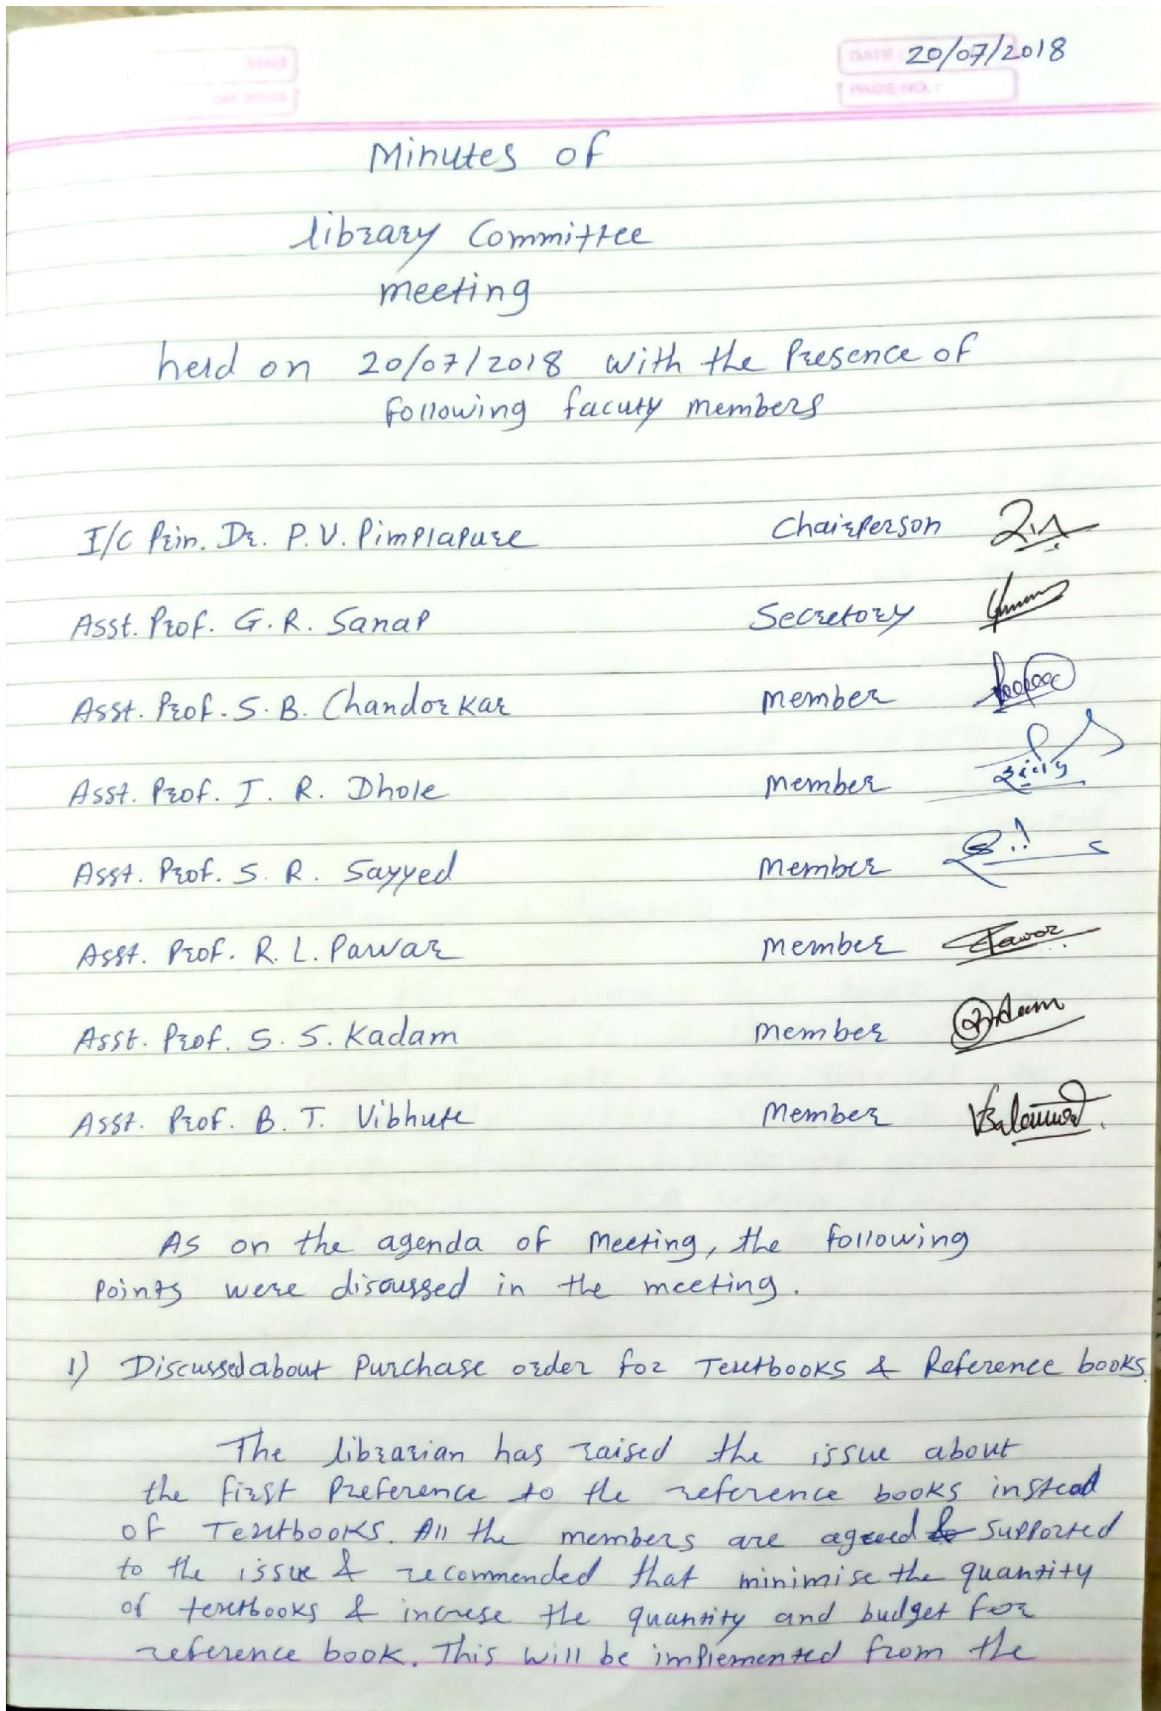 20/07/2018
Minutes of
library Committee
meeting
held on 20/07/2018 with the Presence of
following facuty members
I/C Prin. Dr. P. V. Pimplapure Chairperson
Asst. Prof. G. R. Sanap Secretory
Asst. Prof. S. B. Chandorkar member
Asst. Prof. I. R. Dhole member
Asst. Prof. S. R. Sayyed member
Asst. Prof. R. L. Pawar member Pawar
Asst. Prof. S. S. Kadam member
Asst. Prof. B. T. Vibhute member
As on the agenda of meeting, the following
points were discussed in the meeting.
1) Discussed about Purchase order for Textbooks & Reference books.
The librarian has raised the issue about
the first Preference to the reference books instead
of Textbooks. All the members are agreed & supported
to the issue & recommended that minimise the quantity
of textbooks & increse the quantity and budget for
reference book. This will be implemented from the